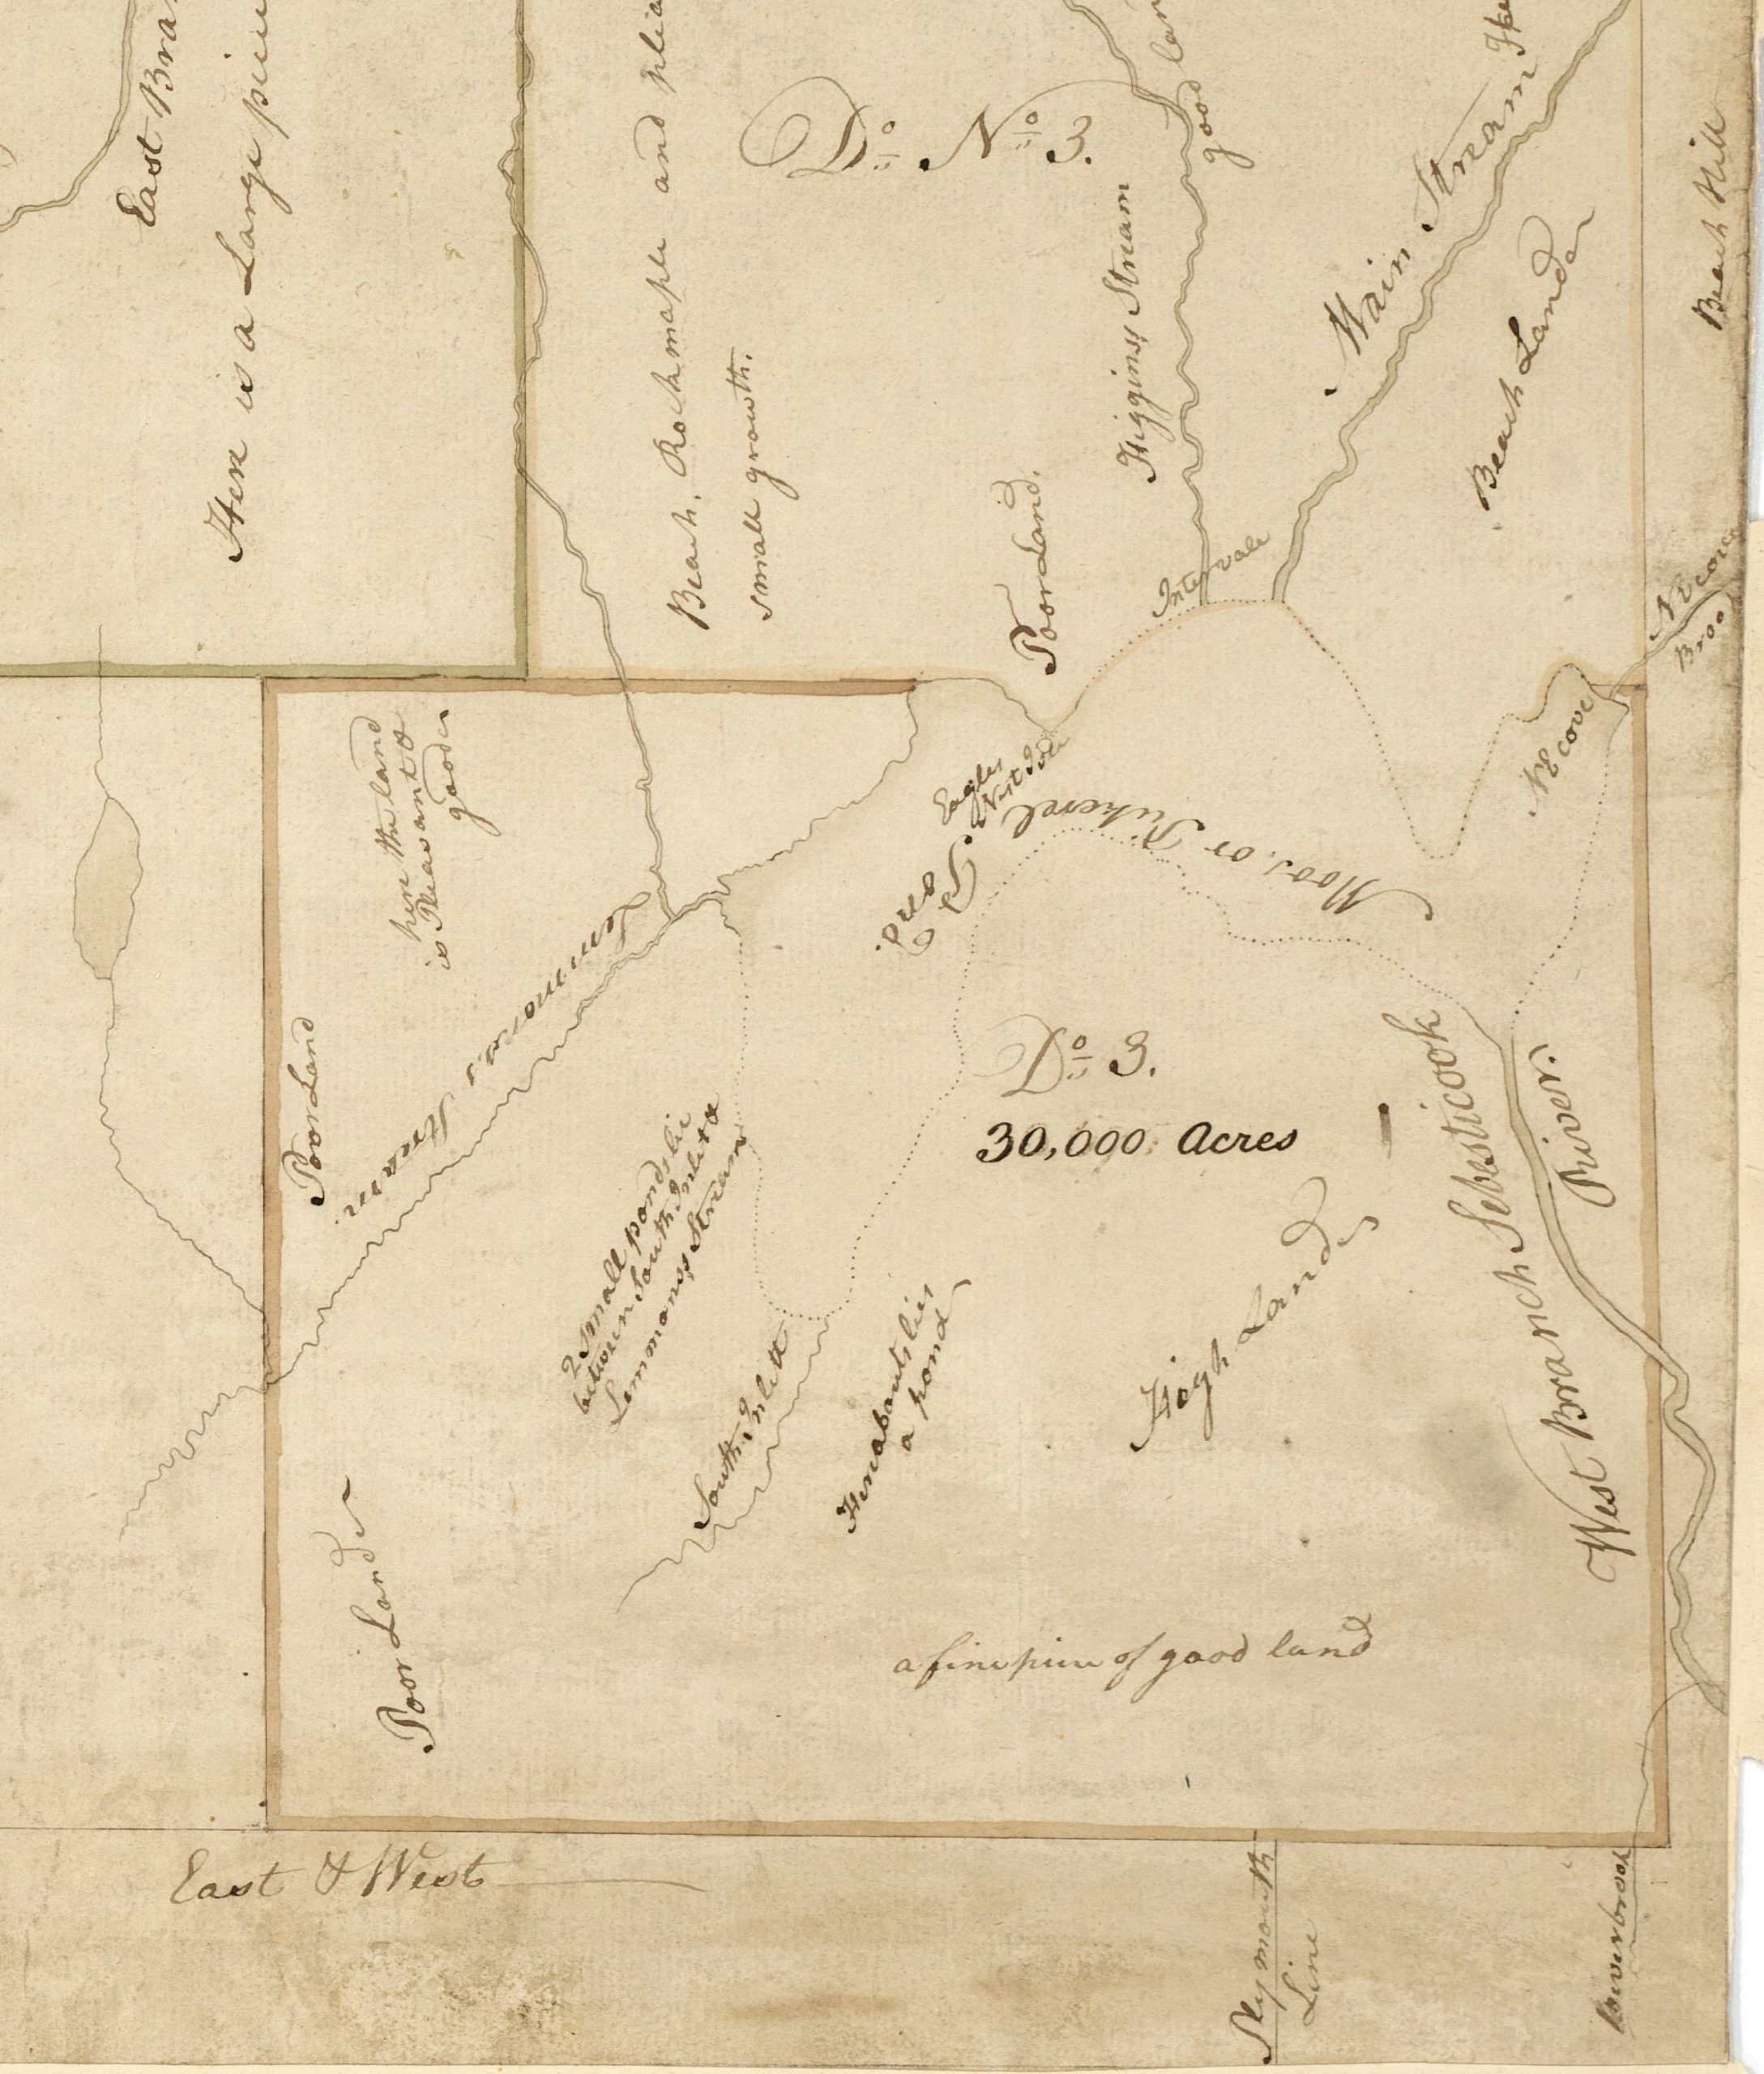 East Bra
Here is a Large piece
Beach, Rock maple and plea
small growth.
Do. No. 3.
Higgins's Stream
good lan
Main Stream
Beach Land
Beach Hill
Poor Land.
Intervale
NE cove
Broo
NE cove
here the land
is Pleasant &
good
Eagles
Nest
Moos, or Pickerel
Pond.
Poor Land
Lemmons's Stream.
Do. 3.
30,000 Acres
2 small ponds lie
between South Inlet &
Lemmons's Stream
South Inlett
Hereabouts lies
a pond
High Land
West Branch Sebesticook
River.
Poor Land
a fine piece of good land
East & West
Plymouth
Line